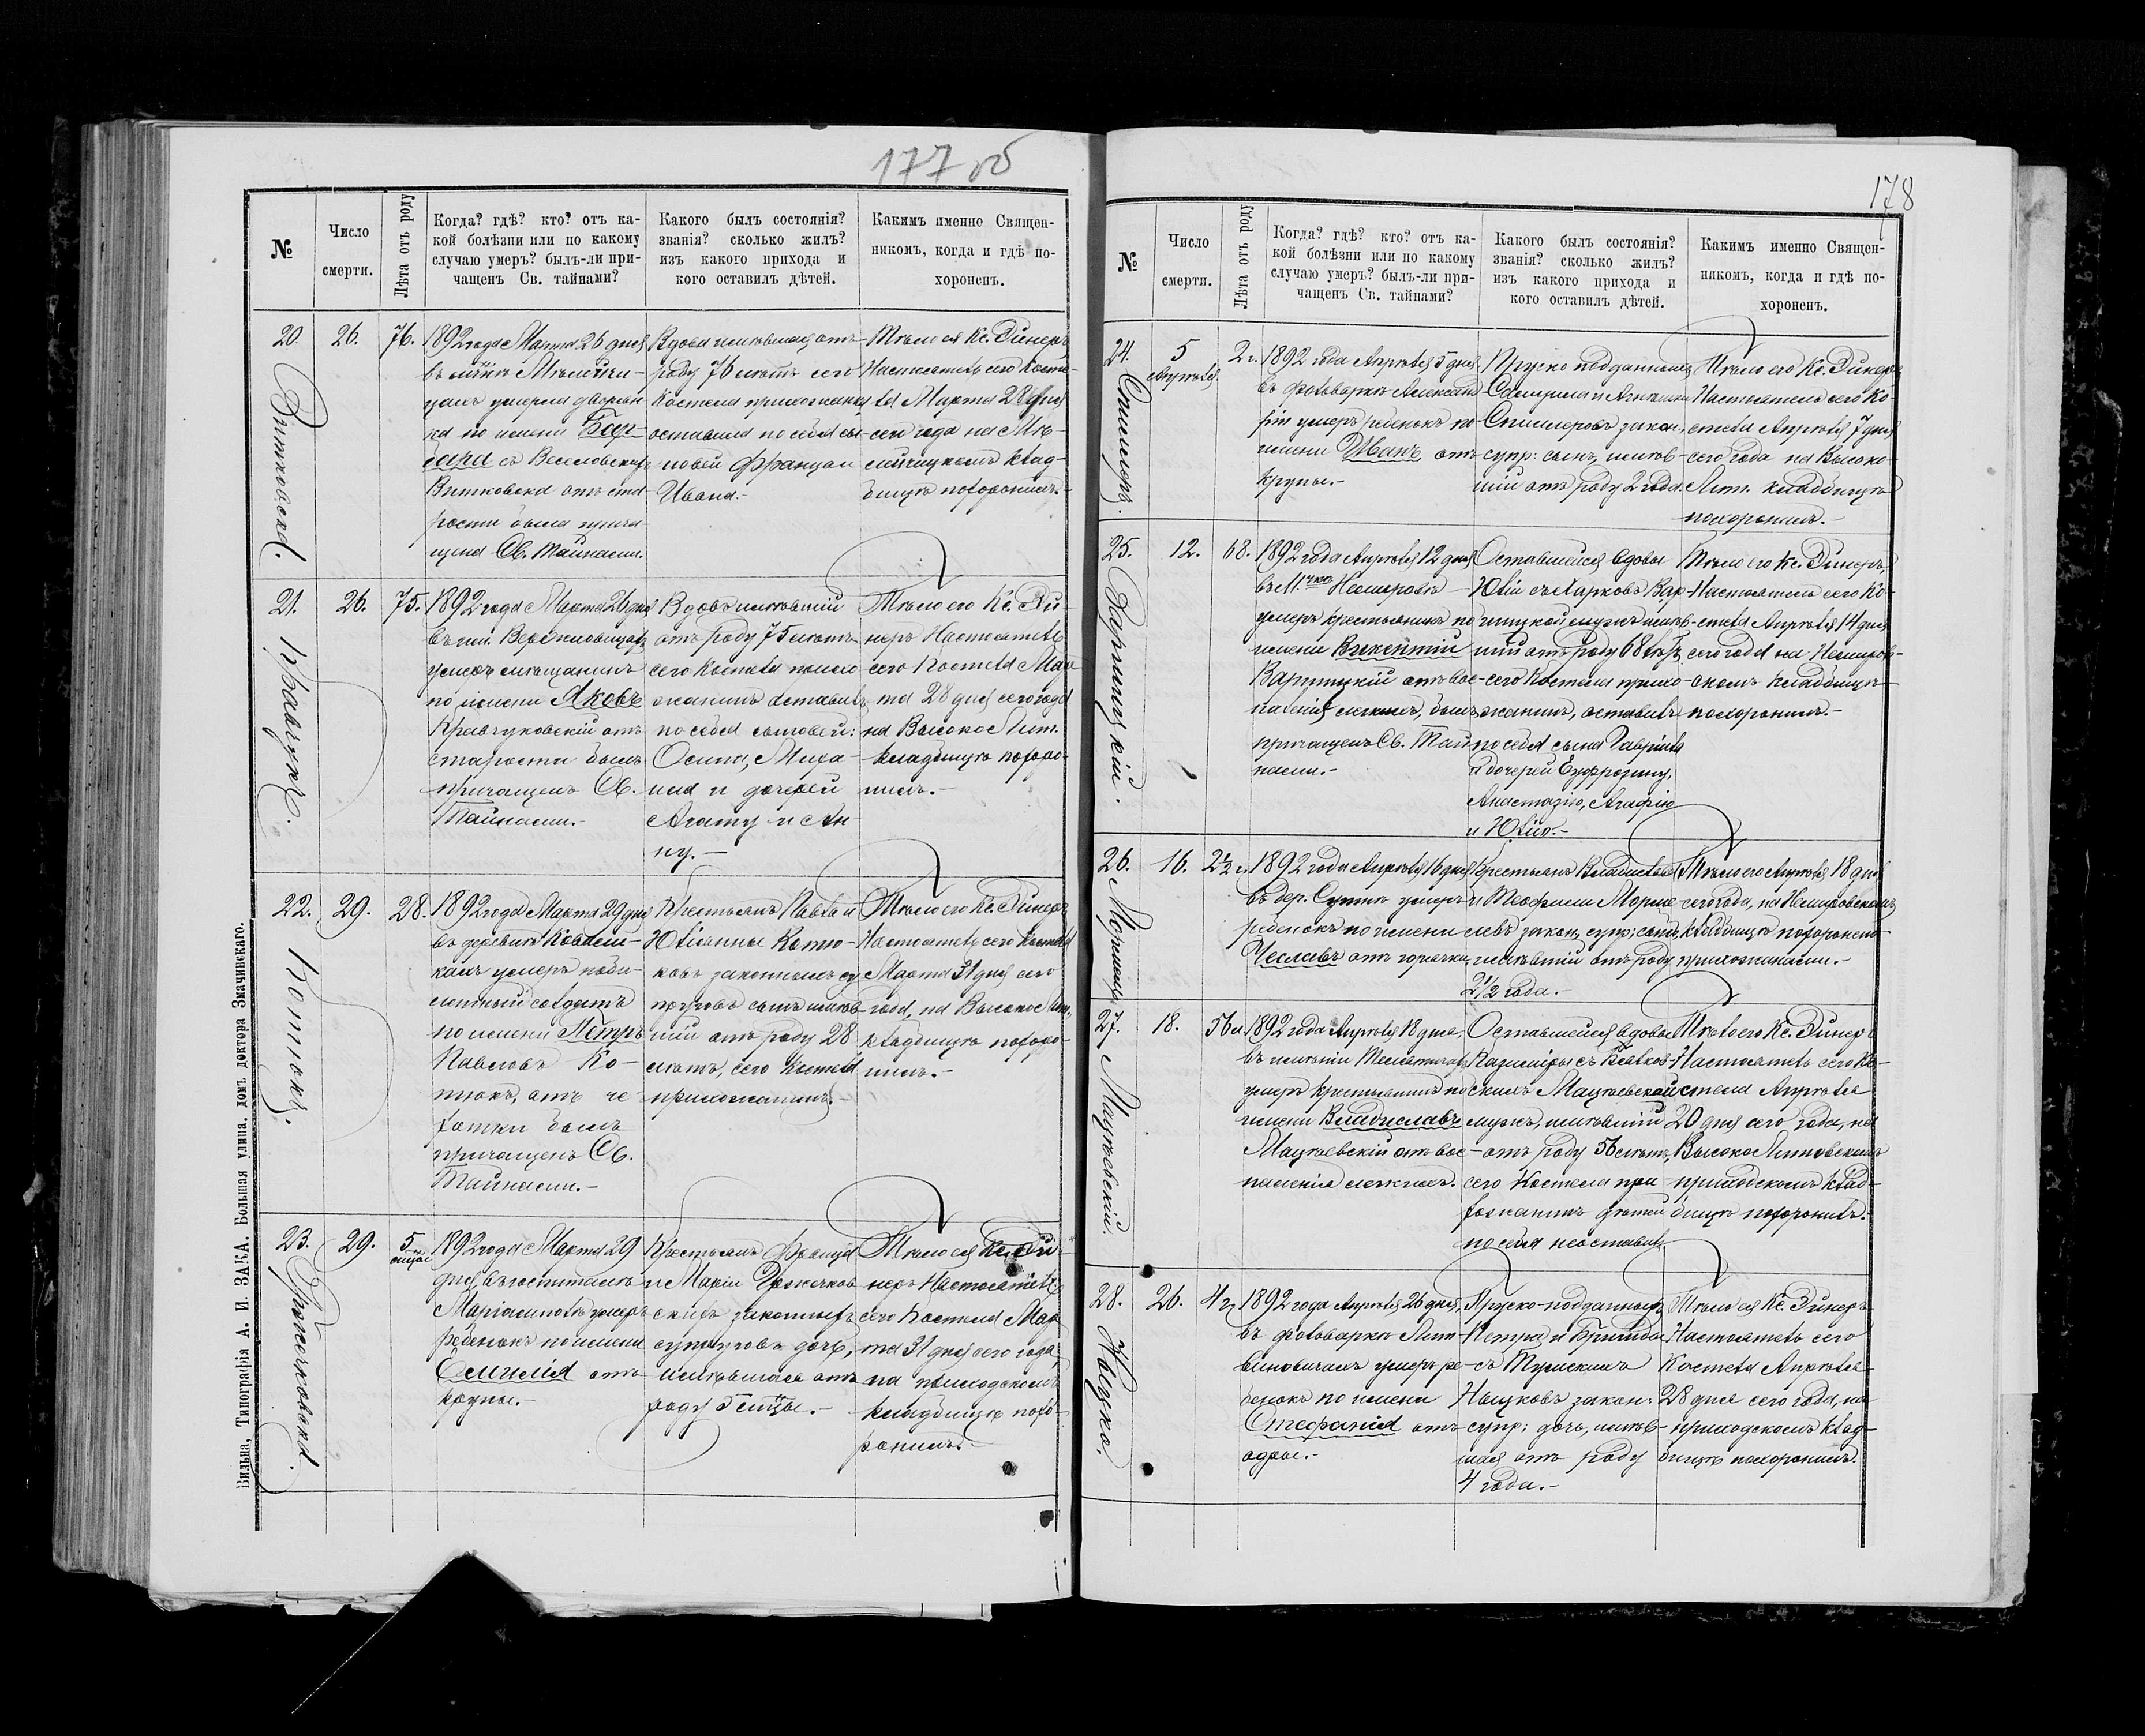 177 об
№
Число
смерти.
Лѣта отъ роду
Когда? гдѣ? кто? отъ ка-
кой болѣзни или по какому
случаю умеръ? былъ-ли при-
чащенъ Св. тайнами?
Какого былъ состоянія?
званія? сколько жилъ?
изъ какого прихода и
кого оставилъ дѣтей.
Какимъ именно Священ-
никомъ, когда и гдѣ по-
хороненъ.
20.
Витковска.
26.
76.
1892 года Марта 26 дня
умерла дворян-
ка по имени Бар-
бара съ Веселовскихъ
Витковска отъ ста-
рости была прича-
щена Св. Тайнами.
Вдова имѣвшая отъ
роду 76 лѣтъ сего
Костела прихожанка
оставила по себѣ сы-
новей Францъ и
Ивана.-
Тѣло ея Кс. Эйнеръ
Настоятель сего Косте-
ла Марта 28 дня
сего года на Мѣ-
клад-
бищѣ похоронилъ.-
21.
Кравчукъ.
26.
75.
1892 года Марта 26 дня
умеръ мѣщанинъ
по имени Яковъ
Кравчуковскій отъ
старости былъ
причащенъ Св.
Тайнами.-
Вдовъ имѣвшій
отъ роду 75 лѣтъ
сего Костела прихо-
жанинъ оставилъ
по себѣ сыновей:
Осипа, Миха-
ила и дочерей
Агату и Ан-
ну.-
Тѣло его Кс. Эй-
неръ Настоятель
сего Костела Мар-
та 28 дня сего года
на Высоко Лит.
кладбищѣ похоро-
нилъ.-
22.
Котюкъ.
29.
28.
1892 года Марта 29 дня
въ деревнѣ
умеръ
солдатъ
по имени Петръ
Павловъ Ко-
тюкъ, отъ ча-
хотки былъ
причащенъ Св.
Тайнами.-
Крестьянъ Павла и
Юліанны Котю-
ковъ законныхъ су-
пруговъ сынъ имѣв-
шій отъ роду 28
лѣтъ, сего Костела
прихожанинъ.-
Тѣло его Кс. Эйнеръ
Настоятель сего Костела
Марта 31 дня сего
года, на Высоко Лит.
кладбищѣ похоро-
нилъ.-
23.
29.
5
1892 года Марта 29
дня, въ
умеръ
ребенокъ по имени
Емилія отъ
крупы.-
Крестьянъ Франца
и Маріи
скихъ законныхъ
супруговъ дочь,
имѣвшая отъ
роду 5
Тѣло ея Кс. Эй-
неръ Настоятель
сего Костела Мар-
та 31 дня сего года,
на приходскомъ
кладбищѣ похо-
ронилъ.-
Вильна, Типографія А. И. ЗАКА. Большая улица, домъ доктора Значинскаго.
178
№
Число
смерти.
Лѣта отъ роду
Когда? гдѣ? кто? отъ ка-
кой болѣзни или по какому
случаю умеръ? былъ-ли при-
чащенъ Св. тайнами?
Какого былъ состоянія?
званія? сколько жилъ?
изъ какого прихода и
кого оставилъ дѣтей.
Какимъ именно Священ-
никомъ, когда и гдѣ по-
хороненъ.
24.
5
Апрѣля
2 г.
1892 года Апрѣля 5 дня
въ фольваркѣ Александ-
ріи умеръ ребенокъ по
имени Иванъ, отъ
крупы.-
Пруско подданныхъ
закон.
супр: сынъ, имѣв-
шій отъ роду 2 года.
Тѣло его Кс. Эйнеръ
Настоятель сего Ко-
стела Апрѣля 7 дня
сего года на Высоко-
Лит. кладбищѣ
похоронилъ.-
25.
Варпицкій.
12.
68.
1892 года Апрѣля 12 дня
въ Немировѣ
умеръ крестьянинъ по
имени Викентій
Варпицкій отъ вос-
паленія легкихъ, былъ
причащенъ Св. Тай-
нами.-
Оставшейся вдовы
Юліи съ Харковъ Вар-
пицкой мужъ имѣв-
шій отъ роду 68 лѣтъ
сего Костела прихо-
жанинъ, оставилъ
по себѣ сына Гавріила
и дочерей Еуфрозину,
Анастазію, Агафію
и Юлію.-
Тѣло его Кс. Эйнеръ,
Настоятель сего Ко-
стела Апрѣля 14 дня
сего года на Немиров-
скомъ кладбищѣ
похоронилъ.-
26.
16.
2½ г.
1892 года Апрѣля 16 дня
въ дер. умеръ
ребенокъ по имени
Чеславъ отъ горячки,
Крестьянъ Владислава
и Теофили
закон. супр: сынъ,
имѣвшій отъ роду
2½ года.-
Тѣло его Апрѣля 18 дня
сего года, на Немировскомъ
кладбищѣ похоронено
прихожанами.-
27.
Мацѣевскій.
18.
56 л.
1892 года Апрѣля 18 дня,
въ имѣніи
умеръ крестьянинъ по
имени Владиславъ
Мацѣевскій отъ вос-
паленія легкихъ.
Оставшейся вдовы
Казимиры съ
скихъ Мацѣевской
мужъ, имѣвшій
отъ роду 56 лѣтъ,
сего Костела при-
хожанинъ дѣтей
по себѣ неоставилъ.
Тѣло его Кс. Эйнеръ
Настоятель сего Ко-
стела Апрѣля
20 дня сего года, на
Высоко Литовскомъ
приходскомъ клад-
бищѣ похоронилъ.-
28.
26.
4 г.
1892 года Апрѣля 26 дня,
въ фольваркѣ Лит-
виновичахъ умеръ ре-
бенокъ по имени
Стефанія отъ
Пруско-подданныхъ
Петра и Бригиды
съ
закон:
супр: дочь, имѣв-
шая отъ роду
4 года.-
Тѣло ея Кс. Эйнеръ
Настоятель сего
Костела Апрѣля
28 дня сего года, на
приходскомъ клад-
бищѣ похоронилъ.